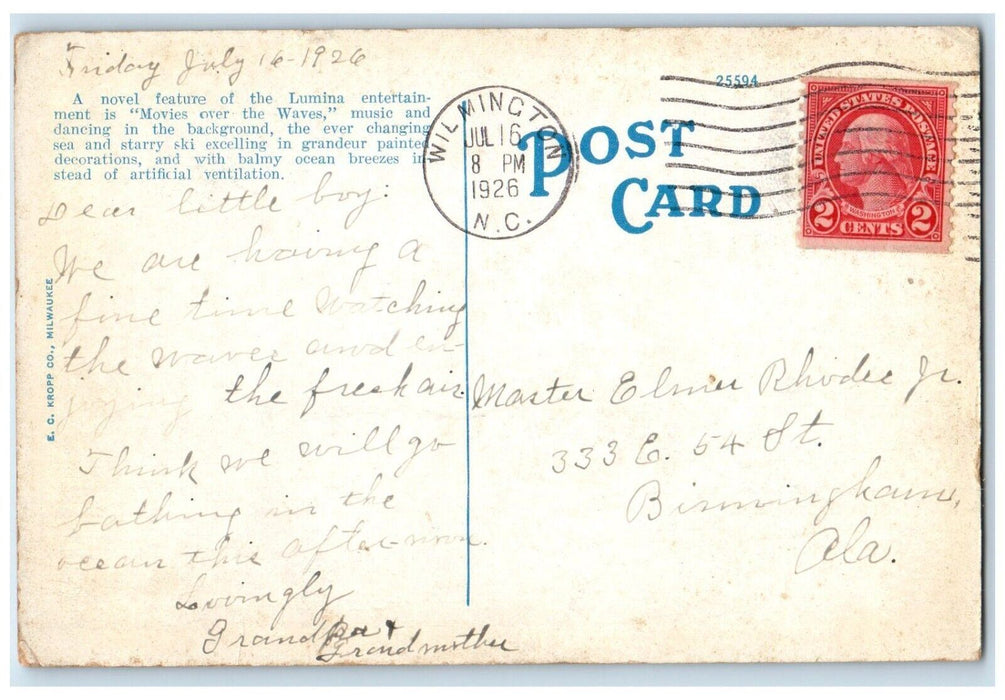 Friday July 16-1926
A novel feature of the Lumina entertain-
ment is "Movies over the Waves," music and
dancing in the background, the ever changing
sea and starry ski excelling in grandeur painted
decorations, and with balmy ocean breezes in-
stead of artificial ventilation.
Dear little boy:
We are having a
fine time watching
the waves and en-
joying the fresh air.
Think we will go
bathing in the
ocean this afternoon.
Lovingly
Grandpa &
Grandmother
E. C. KROPP CO., MILWAUKEE
WILMINGTON
JUL 16
8 PM
1926
N.C.
25594
POST
CARD
UNITED STATES POSTAGE
WASHINGTON
2 CENTS 2
Master Elmer Rhodes Jr.
333 E. 54 St.
Birmingham,
Ala.